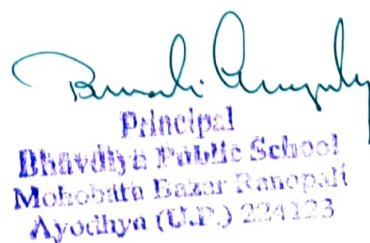 Principal
Bhavdiya Public School
Mohobara Bazar Ranopali
Ayodhya (U.P.) 224123